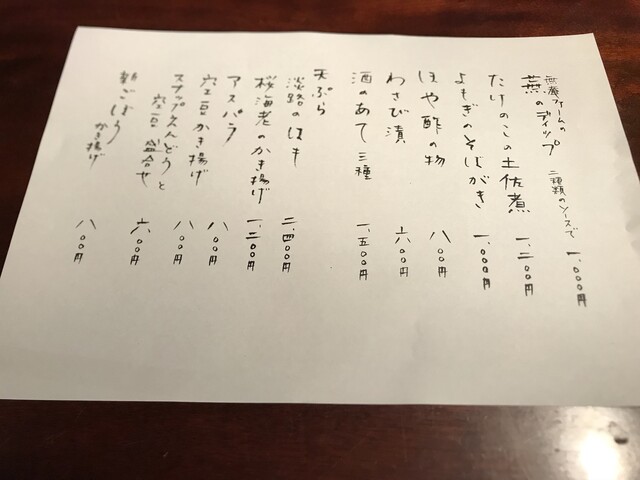 ファームの
蕪のディップ 二種類のソースで 一、〇〇〇円
たけのこの土佐煮 一、二〇〇円
よもぎのそばがき 一、〇〇〇円
ほや酢の物 八〇〇円
わさび漬 六〇〇円
酒のあて三種 一、五〇〇円
天ぷら
淡路のはも 二、四〇〇円
桜海老のかき揚げ 一、二〇〇円
アスパラ 八〇〇円
空豆かき揚げ 八〇〇円
スナップえんどうと
空豆 盛合せ 六〇〇円
新ごぼう
かき揚げ 八〇〇円